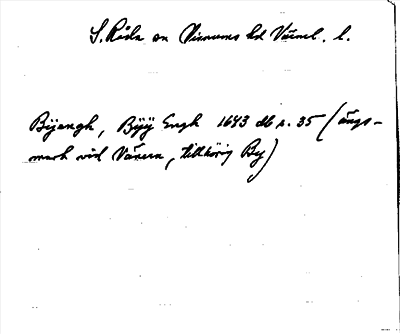 S. Råda sn Visnums hd Värml. l.
Byängh, Bÿÿ Engh 1643 db s. 35 (ängs-
mark vid Vänern, tillhörig By)